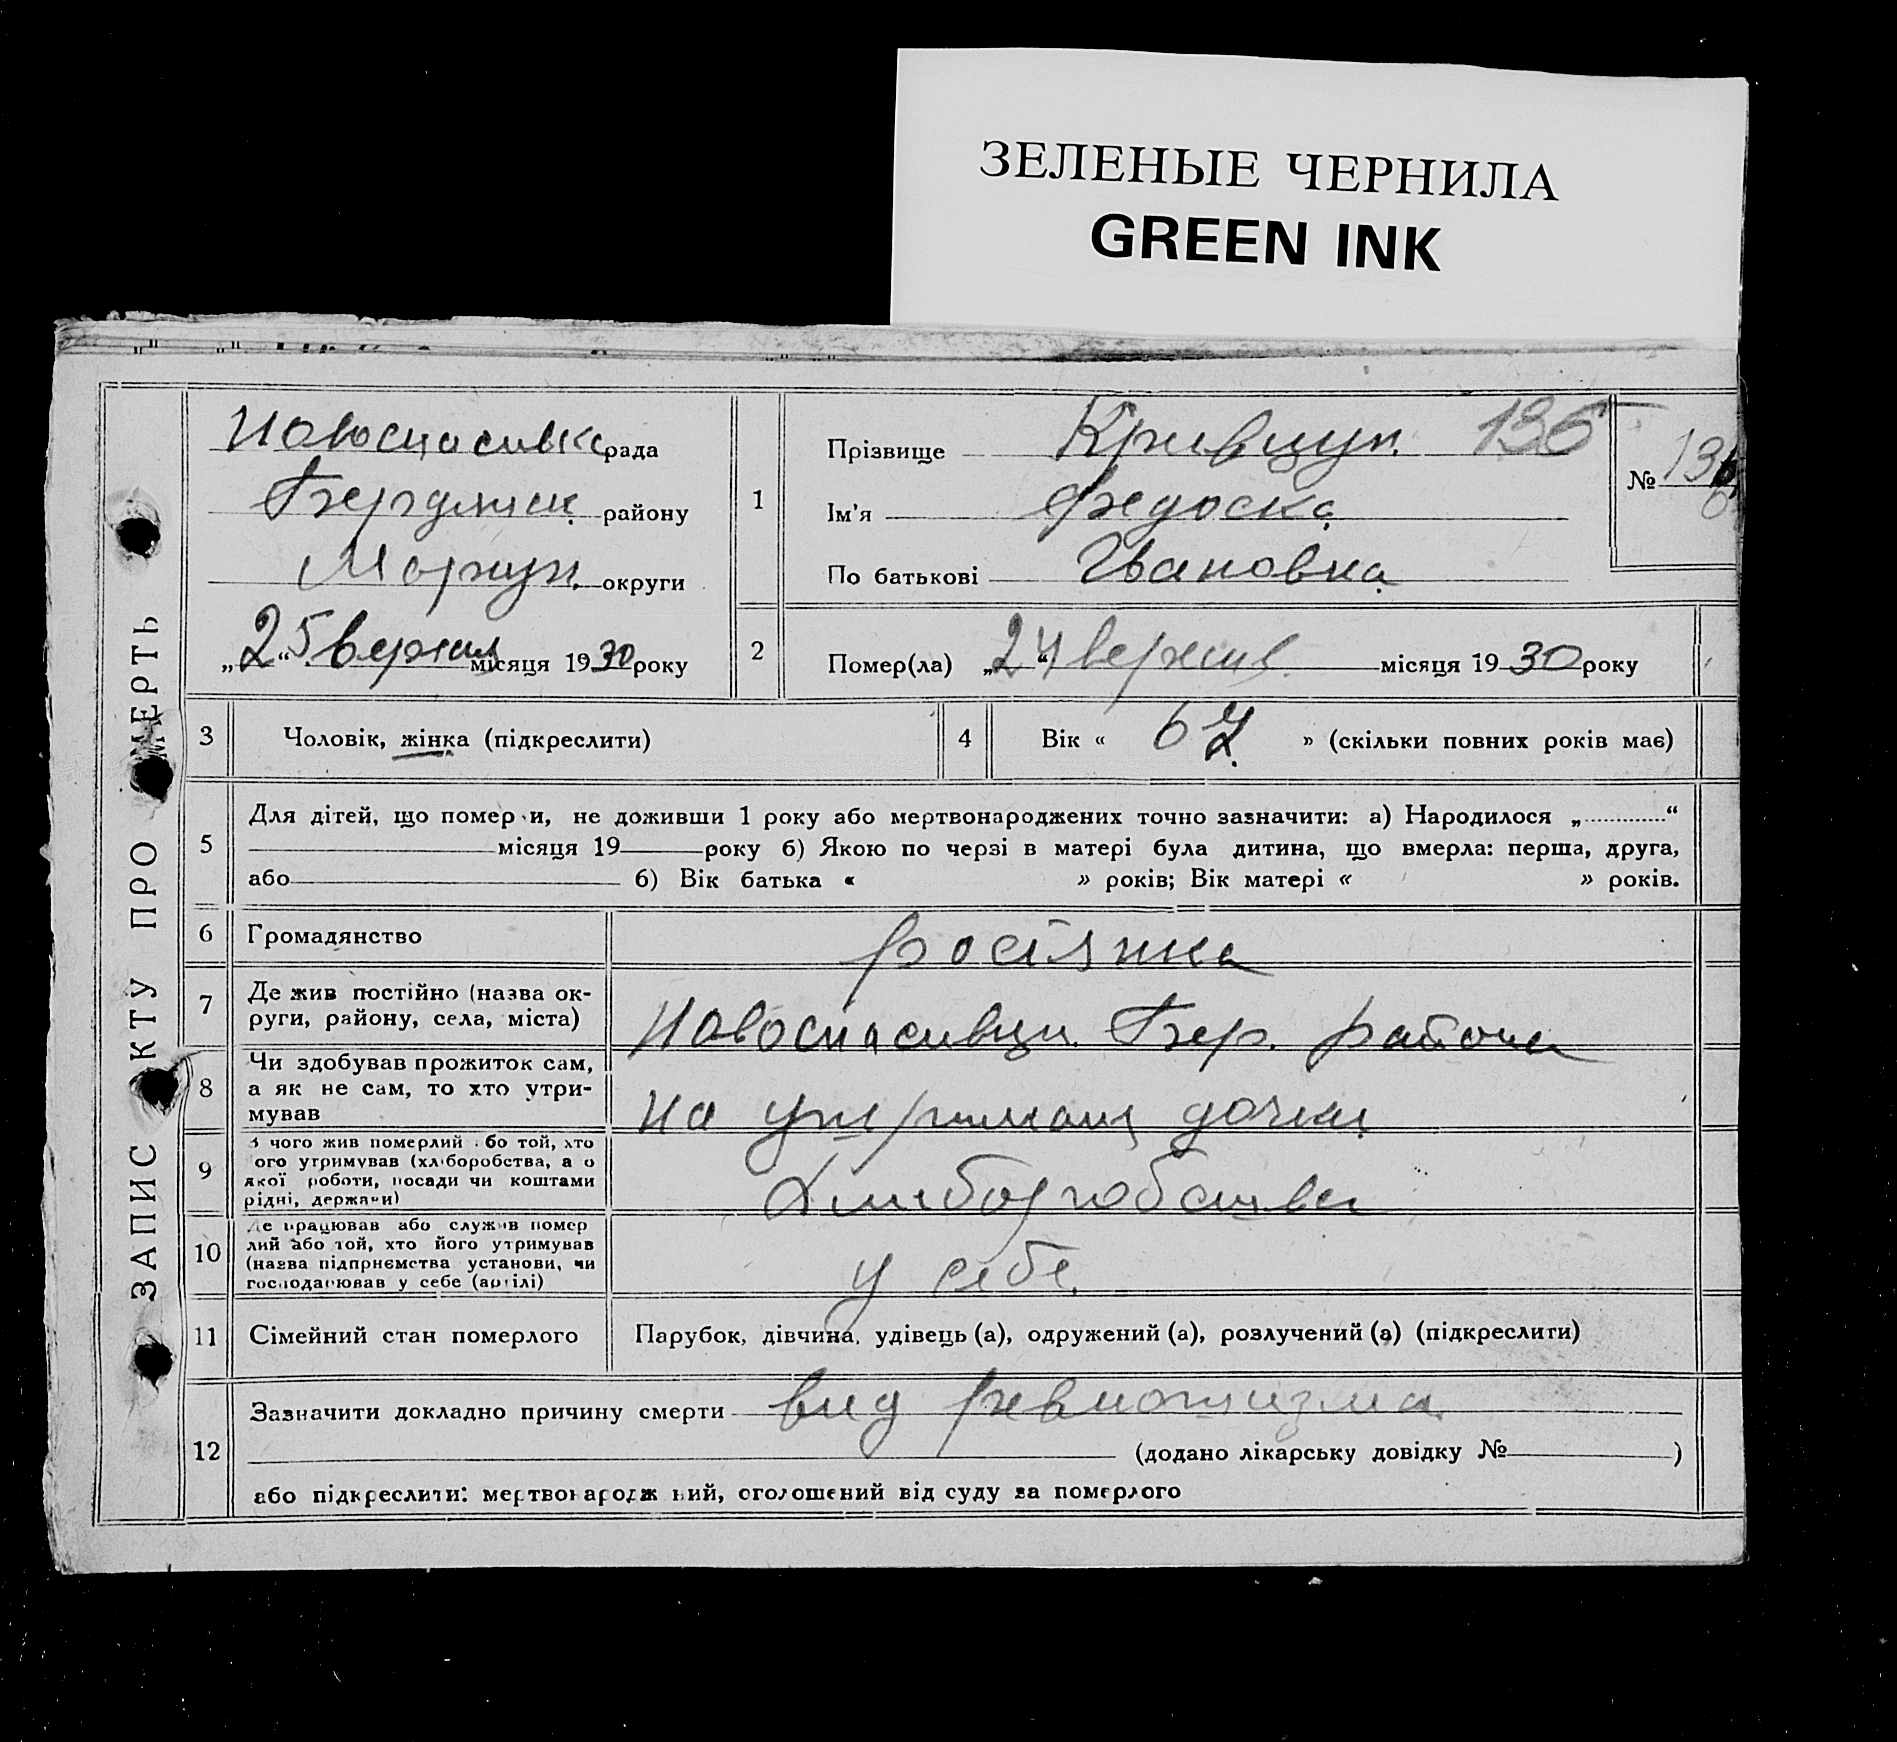 ЗЕЛЕНЫЕ ЧЕРНИЛА
GREEN INK
ЗАПИС АКТУ ПРО СМЕРТЬ
Новоспасивка рада
Бердянск району
Маріуп. округи
„25“ вересня місяця 1930 року
1
Прізвище Кривцун. 136
Ім'я Федоска
По батькові Івановна
№ 136
2
Помер(ла) „24“ вересня місяця 1930 року
3 Чоловік, жінка (підкреслити)
4 Вік « 67 » (скільки повних років має)
5 Для дітей, що померли, не доживши 1 року або мертвонароджених точно зазначити: а) Народилося „ “
місяця 19 року б) Якою по черзі в матері була дитина, що вмерла: перша, друга,
або 6) Вік батька « » років; Вік матері « » років.
6 Громадянство росіянка
7 Де жив постійно (назва ок-
руги, району, села, міста) Новоспасивци Бер. району
8 Чи здобував прожиток сам,
а як не сам, то хто утри-
мував на утриманц дочки
9 З чого жив померлий або той, хто
його утримував (хліборобства, а о
якої роботи, посади чи коштами
рідні, держави) Хлиборобства
10 Де працював або служив помер
лий або той, хто його утримував
(назва підприємства установи, чи
господарював у себе (артілі) у себе.
11 Сімейний стан померлого Парубок, дівчина, удівець (а), одружений (а), розлучений (а) (підкреслити)
12 Зазначити докладно причину смерти вид ревматизма
(додано лікарську довідку № )
або підкреслити: мертвонароджений, оголошений від суду за померлого